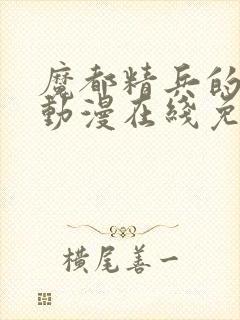 魔都精兵的
動漫在綫免
橫尾善一